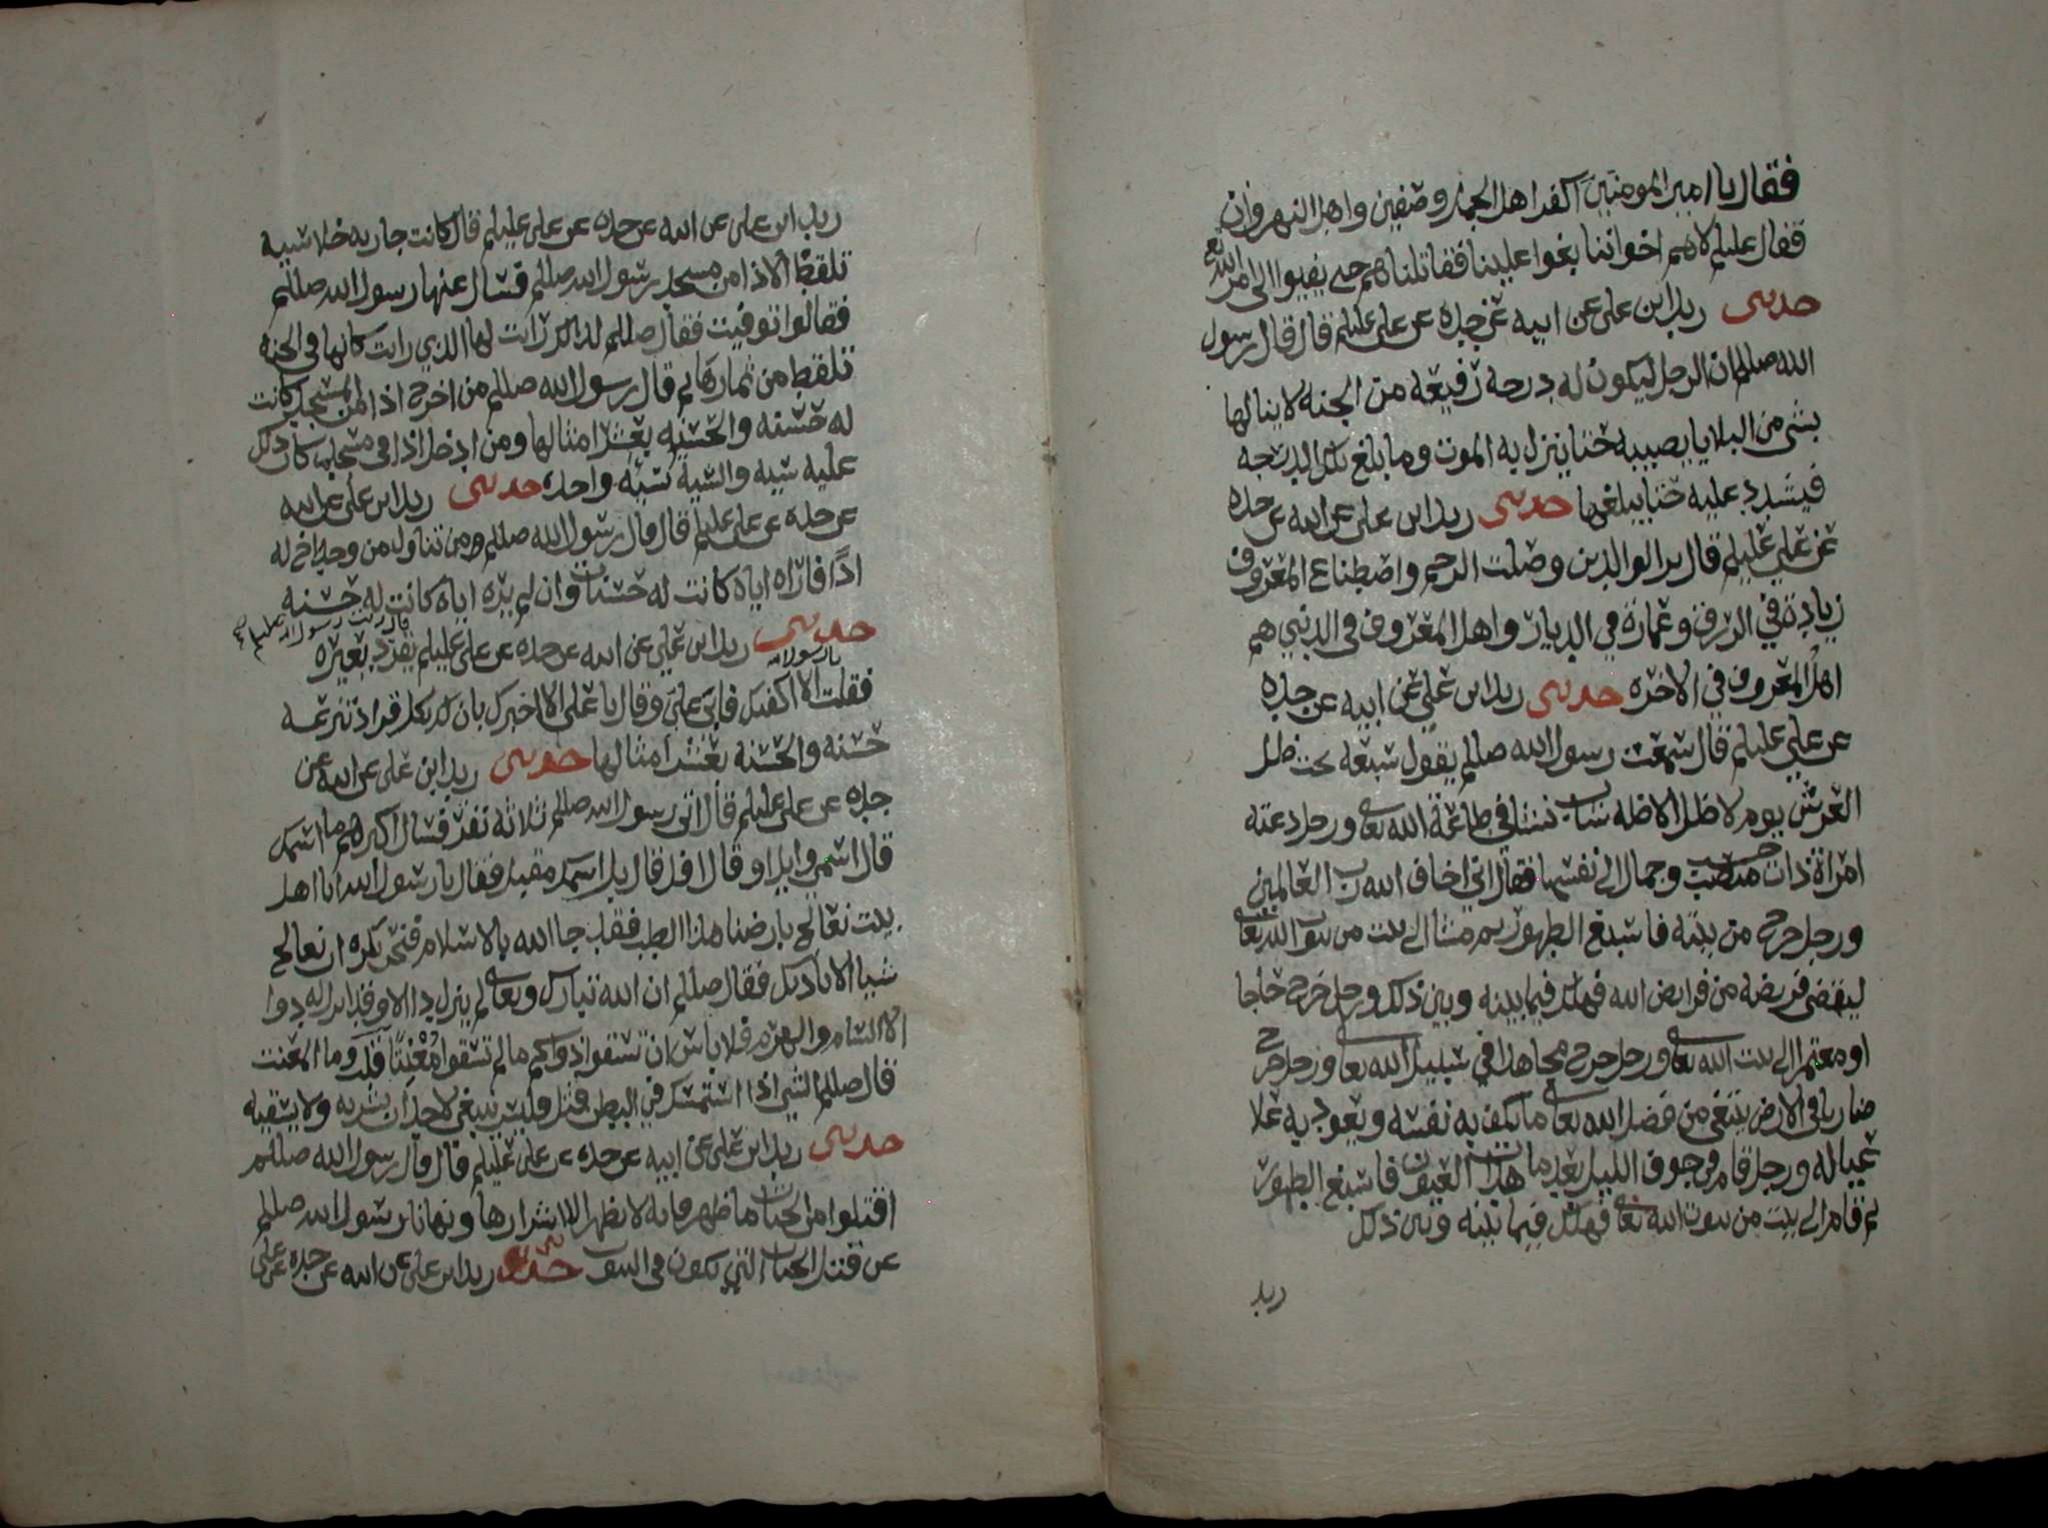 فقال يا امير المومنين اكفر اهل الجمل وصفين واهل النهروان
فقال عليلم لا هم اخواننا بغوا علينا فقاتلناهم حتى يفيوا الى امر الله تع
حدثني زيد ابن علي عن ابيه عن جده عن علي عليلم قال قال رسول
الله صللم ان الرجل ليكون له درجه رفيعه من الجنه لا ينالها
بشي من البلايا يصيبه حتا ينزل به الموت وما بلغ تلك الدرجه
فيشدد عليه حتا يبلغها حدثني زيد ابن علي عن ابيه عن جده
عن علي عليلم قال بر الوالدين وصلت الرحم واصطناع المعروف
زيادة في الرزق وعمارة في الديار واهل المعروف في الدنيى هم
اهل المعروف في الاخره حدثني زيد ابن علي عن ابيه عن جده
عن علي عليلم قال سمعت رسول الله صللم يقول سبعه تحت ظل
العرش يوم لا ظل الا ظله شاب نشا في طاعة الله تعالى ورجل دعته
امراة ذات حسب وجمال الى نفسها فقال اني اخاف الله رب العالمين
ورجل خرج من بيته فاسبغ الطهور ثم مشا الى بيت من بيوت الله تعالى
ليقضي فريضه من فرايض الله فهلك فيما بينه وبين ذلك ورجل خرج حاجا
او معتمرا الى بيت الله تعالى ورجل خرج مجاهدا في سبيل الله تعالى ورجل خرج
ضاربا في الارض يبتغي من فضل الله تعالى ما يكف به نفسه ويعود به علا
عياله ورجل قام في جوف الليل بعد ما هدات العيون فاسبغ الطهور
ثم قام الى بيت من بيوت الله تعالى فهلك فيما بينه وبين ذلك
زيد
زيد ابن علي عن ابيه عن جده عن علي عليلم قال كانت جاريه خلاسيه
تلقط الاذا من مسجد رسول الله صللم فسال عنها رسول الله صللم
فقالوا توفيت فقال صللم لذلك رات لها الذي رات كانها في الجنه
تلقط من ثمارها ثم قال رسول الله صللم من اخرج اذا من المسجد كانت
له حسنه والحسنه بعشر امثالها ومن ادخل اذا في مسجد كان ذلك
عليه سيه والسيه سيه واحده حدثني زيد ابن علي عن ابيه
عن جده عن علي عليلم قال قال رسول الله صللم ومن تناول من وجه اخ له
اذًا فاراه اياه كانت له حسنات وان لم يره اياه كانت له حسنه
قال رايت رسول الله
حدثني زيد ابن علي عن ابيه عن جده عن علي عليلم يقرد بعيره
يا رسول الله
فقلت الا اكفيك فابى علي وقال يا علي الا اخبرك بان لك بكل قراد تنزعه
حسنه والحسنه بعشر امثالها حدثني زيد ابن علي عن ابيه عن
جده عن علي عليلم قال اتى رسول الله صللم ثلاثه نفر فسال اكبرهم ما اسمك
قال اسمي وايل او قال افل قال بل اسمك مقبل فقال يا رسول الله انا اهل
بيت نعالج بارضنا هذا الطب فقد جا الله بالاسلام فنحن نكره ان نعالج
شيا الا باذنك فقال صللم ان الله تبارك وتعالى لم ينزل دا الا وقد انزل له دوا
الا السام والهرم فلا باس ان تسقوا دواكم ما لم تسقوا مُعْنِتًا قلت وما المعنت
قال صللم الشي اذا استمسك في البطن قتل فليس ينبغي لاحد ان يشربه ولا يسقيه
حدثني زيد ابن علي عن ابيه عن جده عن علي عليلم قال قال رسول الله صللم
اقتلوا من الحيات ما ظهر فانه لا يظهر الا اشرارها ونهانا رسول الله صللم
عن قتل الحيات التي تكون في البيوت حدثني زيد ابن علي عن ابيه عن جده عن علي